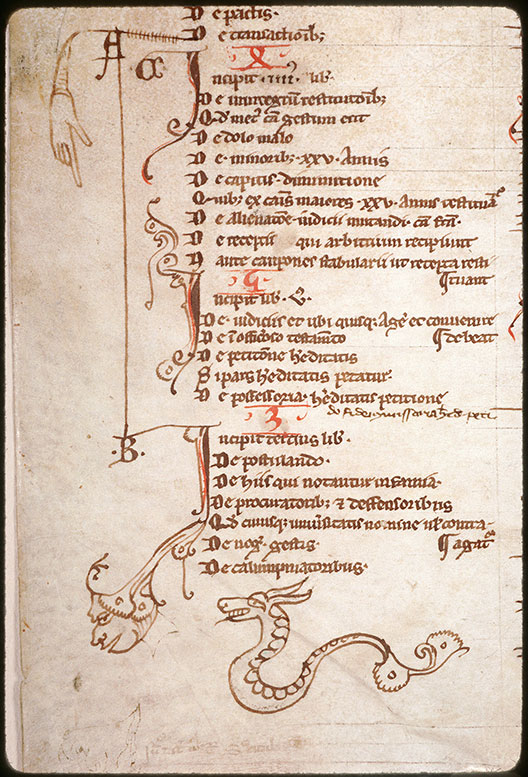 De pactis.
De transactioib;
A
X
Incipit .iiii. lib.
De in integrum restitutoib;
Qd met cā gestum erit
De dolo malo
De minorib; .xxv. Annis
De capitis diminutione
Quib; ex causis maiores .xxv. Annis restituātur
De alienatōe iudicii mutandi cā fcā.
De receptis qui arbitrium recipiunt
Naute caupones stabularii ut recepta resti
¶tuant
Incipit lib. V.
De iudiciis et ubi quisq; Age et conuenire
¶debeat
De īofficioso testamto
De petitiōne heditatis
Si pars heditatis petatur.
De possessoria heditatis petitione
3
.B.
Incipit tertius lib.
De postulando.
De hiis qui notantur infamia.
De procuratorib; & deffensoribus
Qd cuiusq; uniūsitatis nomine ul contra-
¶agat
De neg. gestis.
De calumpniatoribus.